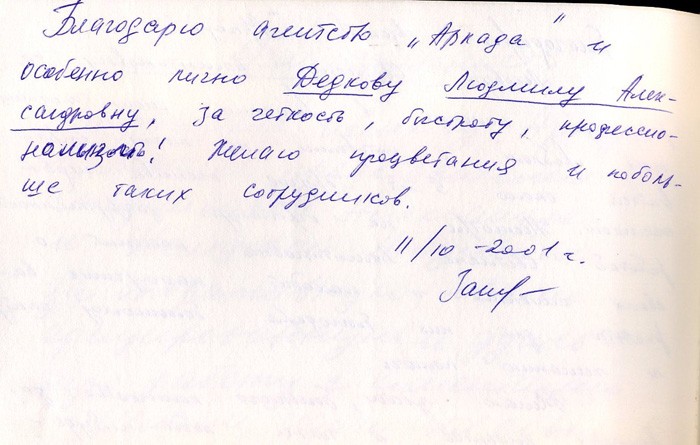 Благодарю агентство "Аркада" и
особенно лично Дедкову Людмилу Алек-
сандровну, за четкость, быстроту, профессио-
нализм! Желаю процветания и поболь-
ше таких сотрудников.
11/10-2001 г.